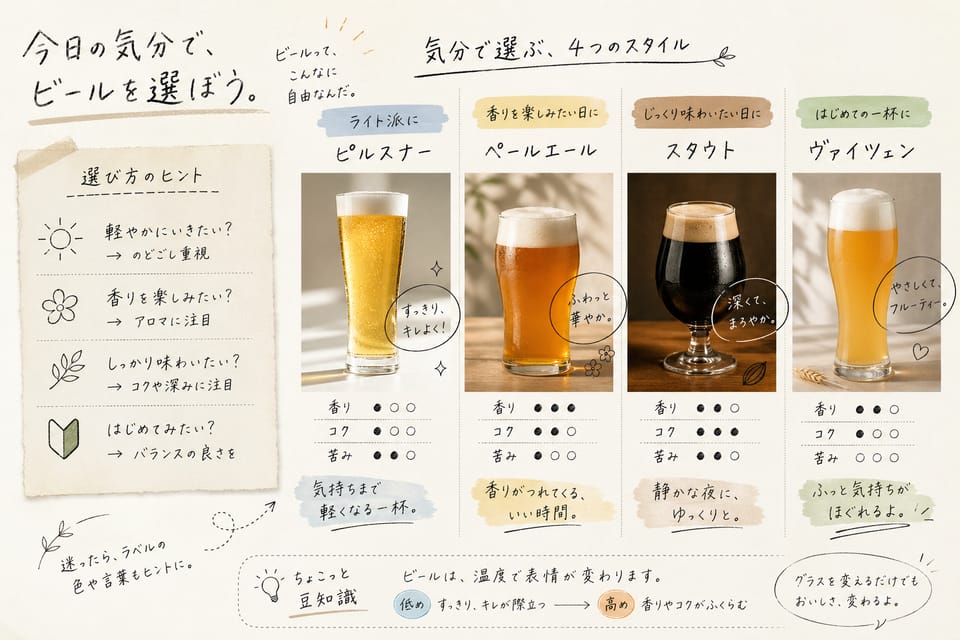 今日の気分で、
ビールを選ぼう。
ビールって、
こんなに
自由なんだ。
気分で選ぶ、4つのスタイル
選び方のヒント
軽やかにいきたい?
→ のどごし重視
香りを楽しみたい?
→ アロマに注目
しっかり味わいたい?
→ コクや深みに注目
はじめてみたい?
→ バランスの良さを
迷ったら、ラベルの
色や言葉もヒントに。
ライト派に
ピルスナー
すっきり、
キレよく!
香り ●○○
コク ●○○
苦み ●●○
気持ちまで
軽くなる一杯。
香りを楽しみたい日に
ペールエール
ふわっと
華やか。
香り ●●●
コク ●●○
苦み ●○○
香りがつれてくる、
いい時間。
じっくり味わいたい日に
スタウト
深くて、
まろやか。
香り ●●○
コク ●●●
苦み ●●○
静かな夜に、
ゆっくりと。
はじめての一杯に
ヴァイツェン
やさしくて、
フルーティー。
香り ●●○
コク ●○○
苦み ○○○
ふっと気持ちが
ほぐれるよ。
ちょこっと
豆知識
ビールは、温度で表情が変わります。
低め すっきり、キレが際立つ → 高め 香りやコクがふくらむ
グラスを変えるだけでも
おいしさ、変わるよ。